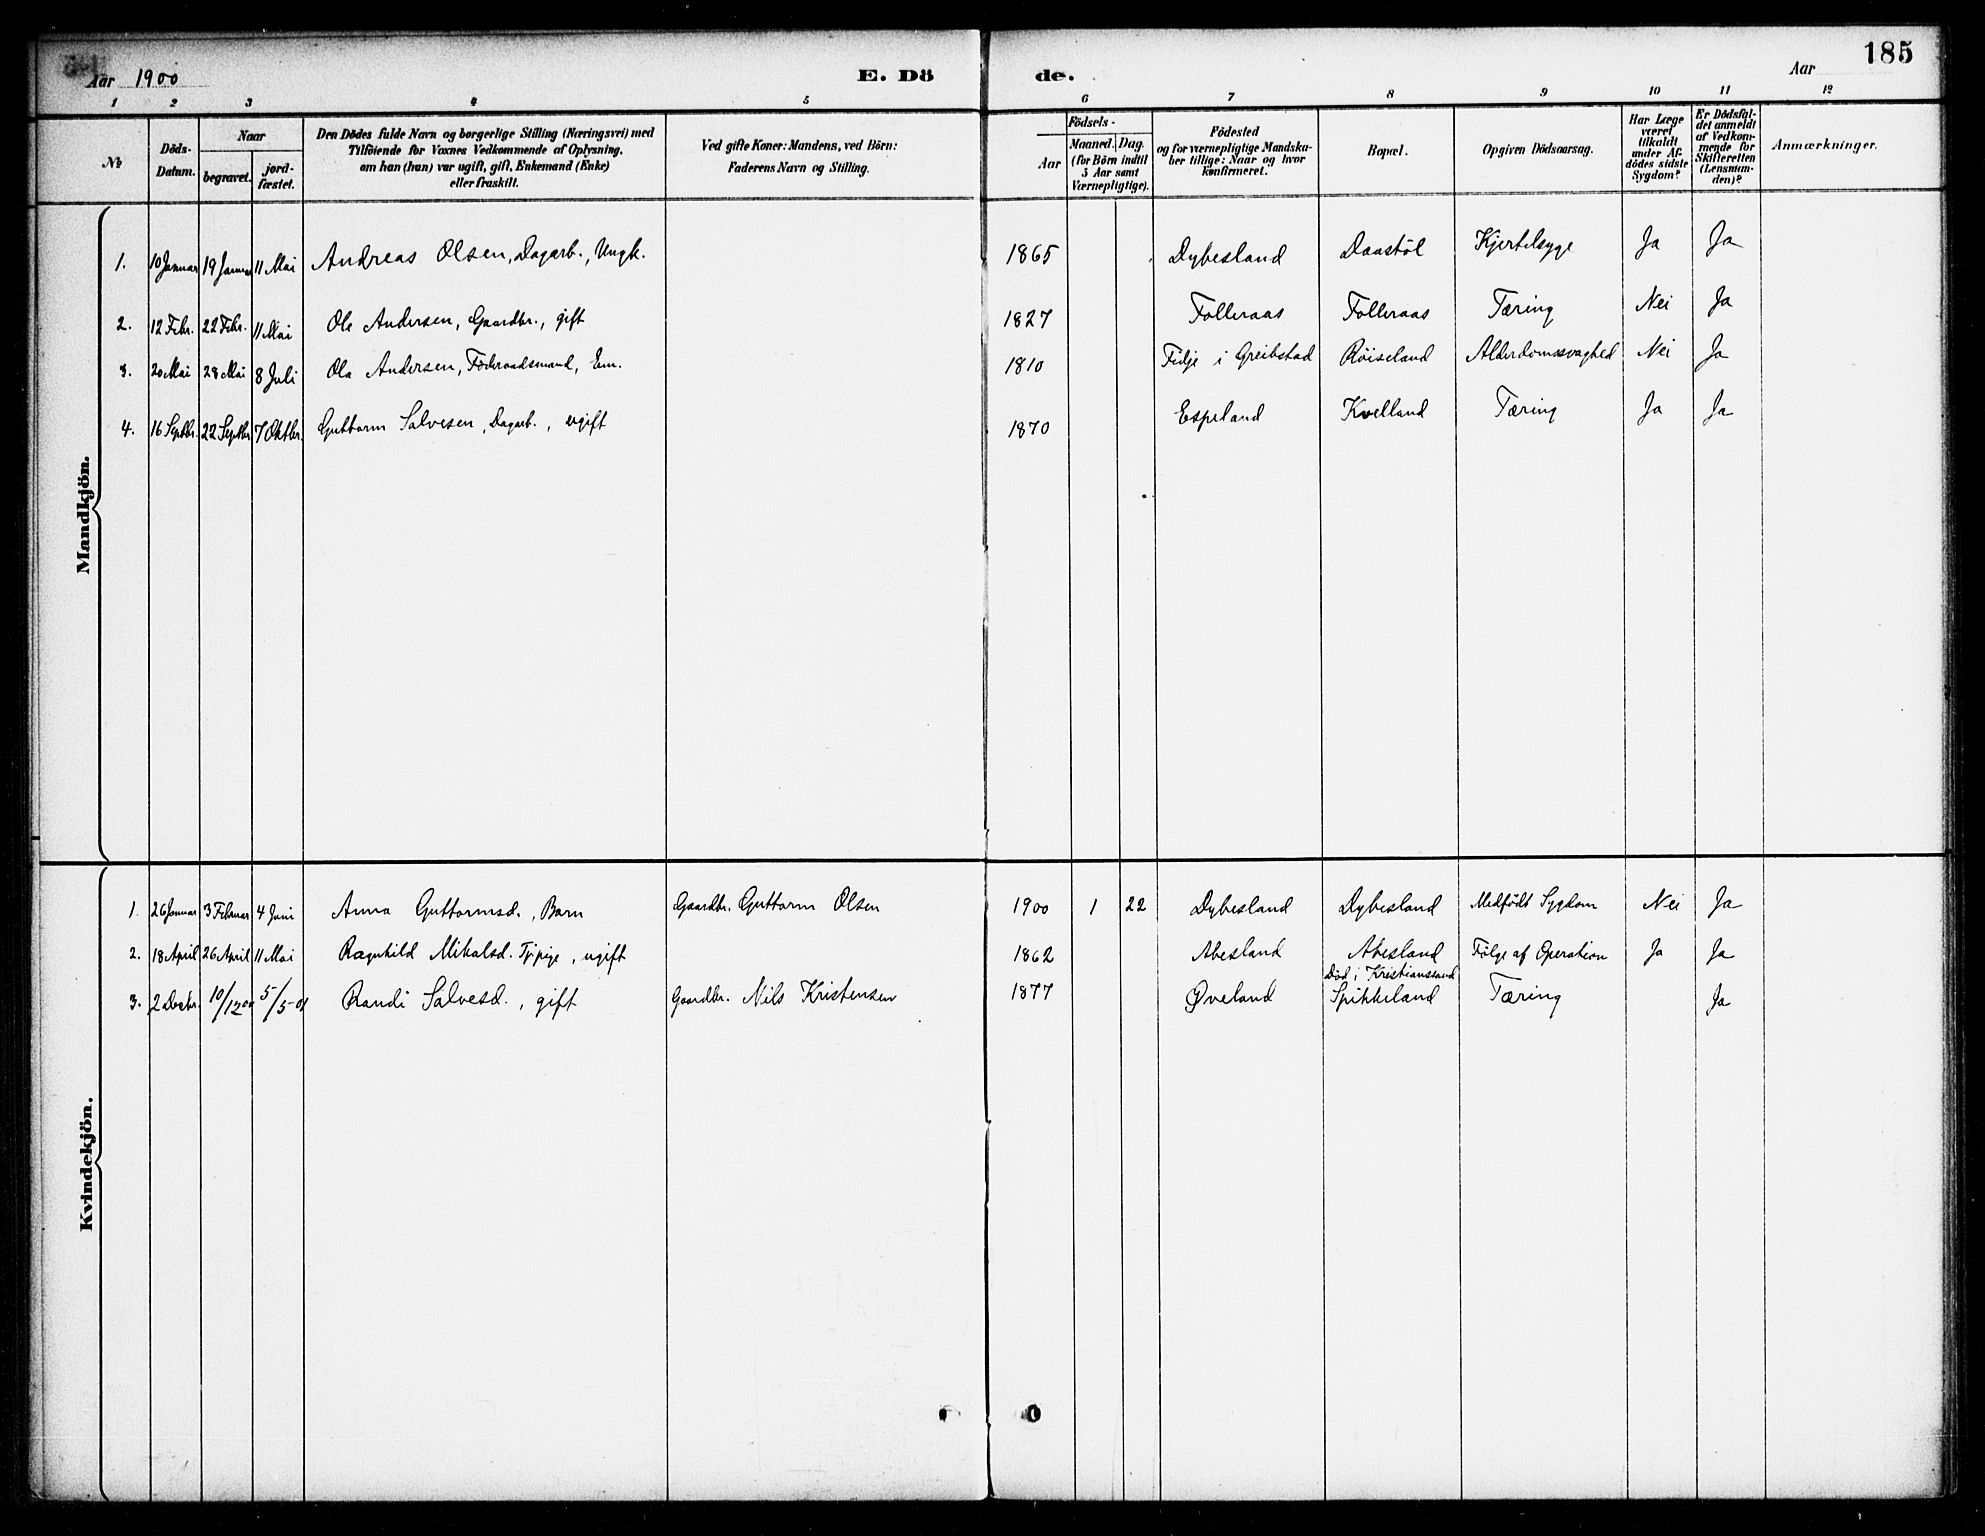 Aar 1900 E. Dö de. Aar 185
1 2 3 4 5 6 7 8 9 10 11 12
No
Döds-Datum.
Naar
begravet.
jord-fæstet.
Den Dödes fulde Navn og borgerlige Stilling (Næringsvei) med
Tilföiende for Voxnes Vedkommende af Oplysning,
om han (hun) var ugift, gift, Enkemand (Enke)
eller fraskilt.
Ved gifte Koner: Mandens, ved Börn:
Faderens Navn og Stilling.
Födsels-
Aar
Maaned. Dag.
(for Börn indtil
5 Aar samt
Værnepligtige).
Födested
og for værnepligtige Mandska-
ber tillige: Naar og hvor
konfirmeret.
Bopæl.
Opgiven Dödsaarsag.
Har Læge
været
tilkaldt
under Af-
dödes sidste
Sygdom?
Er Dödsfal-
det anmeldt
af Vedkom-
mende for
Skifteretten
(Lensman-
den)?
Anmærkninger.
Mandkjön.
1. 10 Januar 19 Januar 11 Mai Andreas Olsen, Dagarb., Ungk. 1865 Dybesland Daastöl Kjertelsyge Ja Ja
2. 12 Febr. 22 Febr. 11 Mai Ole Andersen, Gaardbr., gift 1827 Folleraas Folleraas Tæring Nei Ja
3. 20 Mai 28 Mai 8 Juli Ola Andersen, Föderaadsmand, Em. 1810 Fidje i Greibstad Röiseland Alderdomssvaghed Nei Ja
4. 16 Septbr. 22 Septbr. 7 Oktbr. Guttorm Salvesen, Dagarb., ugift 1870 Espeland Kvelland Tæring Ja Ja
Kvindekjön.
1. 26 Januar 3 Februar 4 Juni Anna Guttormsd., Barn Gaardbr. Guttorm Olsen 1900 1 22 Dybesland Dybesland Medfödt Sygdom Nei Ja
2. 18 April 26 April 11 Mai Ragnhild Mikalsd. Tj.pige, ugift 1862 Abesland Abesland Fölge af Operation Ja Ja
Död i Kristianssand
3. 2 Decbr. 10/12 00 5/5-01 Randi Salvesd., gift Gaardbr. Nils Kristensen 1877 Øveland Spikkeland Tæring Ja